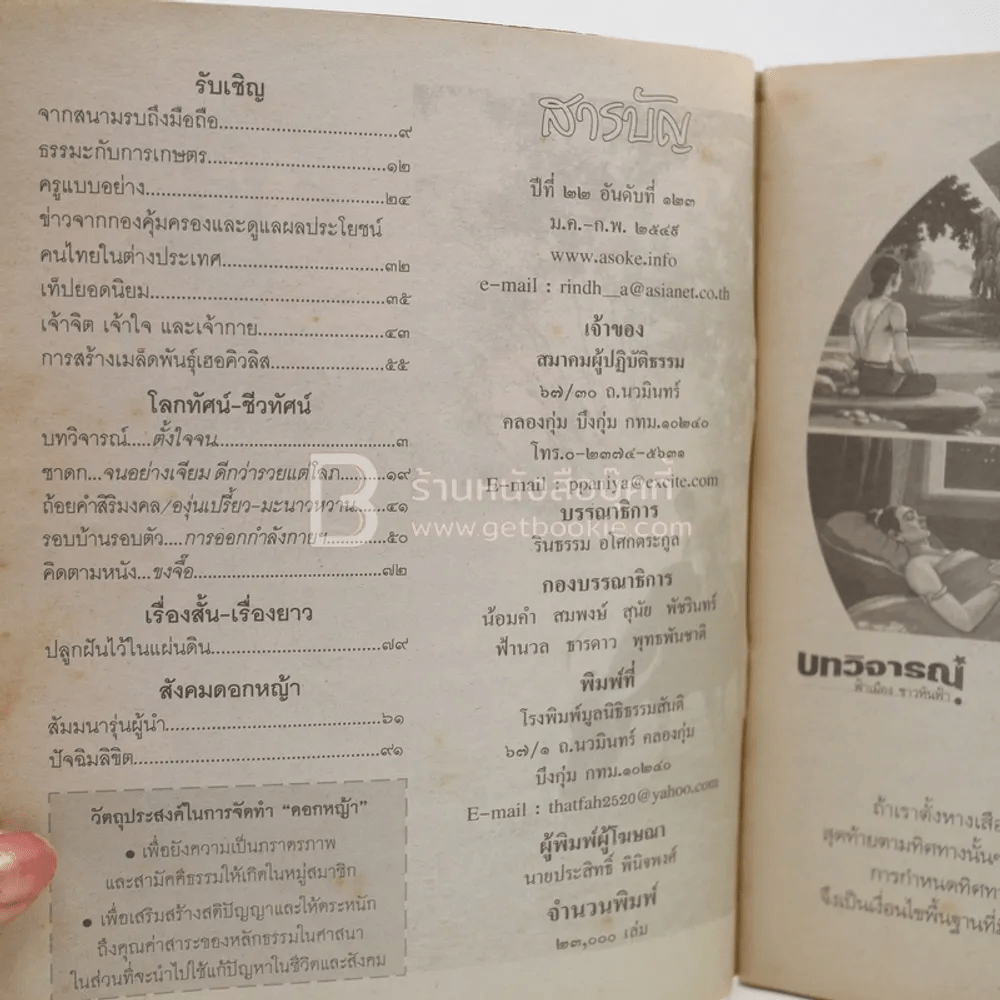 รับเชิญ
จากสนามรบถึงมือถือ................................๙
ธรรมะกับการเกษตร................................๑๒
ครูแบบอย่าง................................๒๔
ข่าวจากกองคุ้มครองและดูแลผลประโยชน์
คนไทยในต่างประเทศ................................๓๒
เท็ปยอดนิยม................................๓๕
เจ้าจิต เจ้าใจ และเจ้ากาย................................๔๓
การสร้างเมล็ดพันธุ์เฮอคิวลิส................................๕๕
โลกทัศน์-ชีวทัศน์
บทวิจารณ์.....ตั้งใจจน................................๓
ชาดก...จนอย่างเจียม ดีกว่ารวยแต่โลภ..........๑๙
ถ้อยคำสิริมงคล/องุ่นเปรี้ยว-มะนาวหวาน......๔๑
รอบบ้านรอบตัว....การออกกำลังกายฯ............๕๐
คิดตามหนัง...ขงจื๊อ................................๗๒
เรื่องสั้น-เรื่องยาว
ปลูกฝันไว้ในแผ่นดิน................................๗๙
สังคมดอกหญ้า
สัมมนารุ่นผู้นำ................................๖๑
ปัจฉิมลิขิต................................๙๑
วัตถุประสงค์ในการจัดทำ “ดอกหญ้า”
● เพื่อยังความเป็นภราดรภาพ
และสามัคคีธรรมให้เกิดในหมู่สมาชิก
● เพื่อเสริมสร้างสติปัญญาและให้ตระหนัก
ถึงคุณค่าสาระของหลักธรรมในศาสนา
ในส่วนที่จะนำไปใช้แก้ปัญหาในชีวิตและสังคม
สารบัญ
ปีที่ ๒๒ อันดับที่ ๑๒๓
ม.ค.-ก.พ. ๒๕๔๙
www.asoke.info
e-mail : rindh_a@asianet.co.th
เจ้าของ
สมาคมผู้ปฏิบัติธรรม
๖๗/๓๐ ถ.นวมินทร์
คลองกุ่ม บึงกุ่ม กทม.๑๐๒๔๐
โทร.๐-๒๓๗๔-๕๖๓๑
E-mail : ppaniya@excite.com
บรรณาธิการ
รินธรรม อโศกตระกูล
กองบรรณาธิการ
น้อมคำ สมพงษ์ สุนัย พัชรินทร์
ฟ้านวล ธารดาว พุทธพันชาติ
พิมพ์ที่
โรงพิมพ์มูลนิธิธรรมสันติ
๖๗/๑ ถ.นวมินทร์ คลองกุ่ม
บึงกุ่ม กทม.๑๐๒๔๐
E-mail : thatfah2520@yahoo.com
ผู้พิมพ์ผู้โฆษณา
นายประสิทธิ์ พินิจพงศ์
จำนวนพิมพ์
๒๓,๐๐๐ เล่ม
ร้านหนังสือบุ๊คกี้
www.getbookie.com
บทวิจารณ์
ฟ้าเมือง ชาวหินฟ้า ●
ถ้าเราตั้งหางเสือ
สุดท้ายตามทิศทางนั้น
การกำหนดทิศทา
จึงเป็นเงื่อนไขพื้นฐานที่